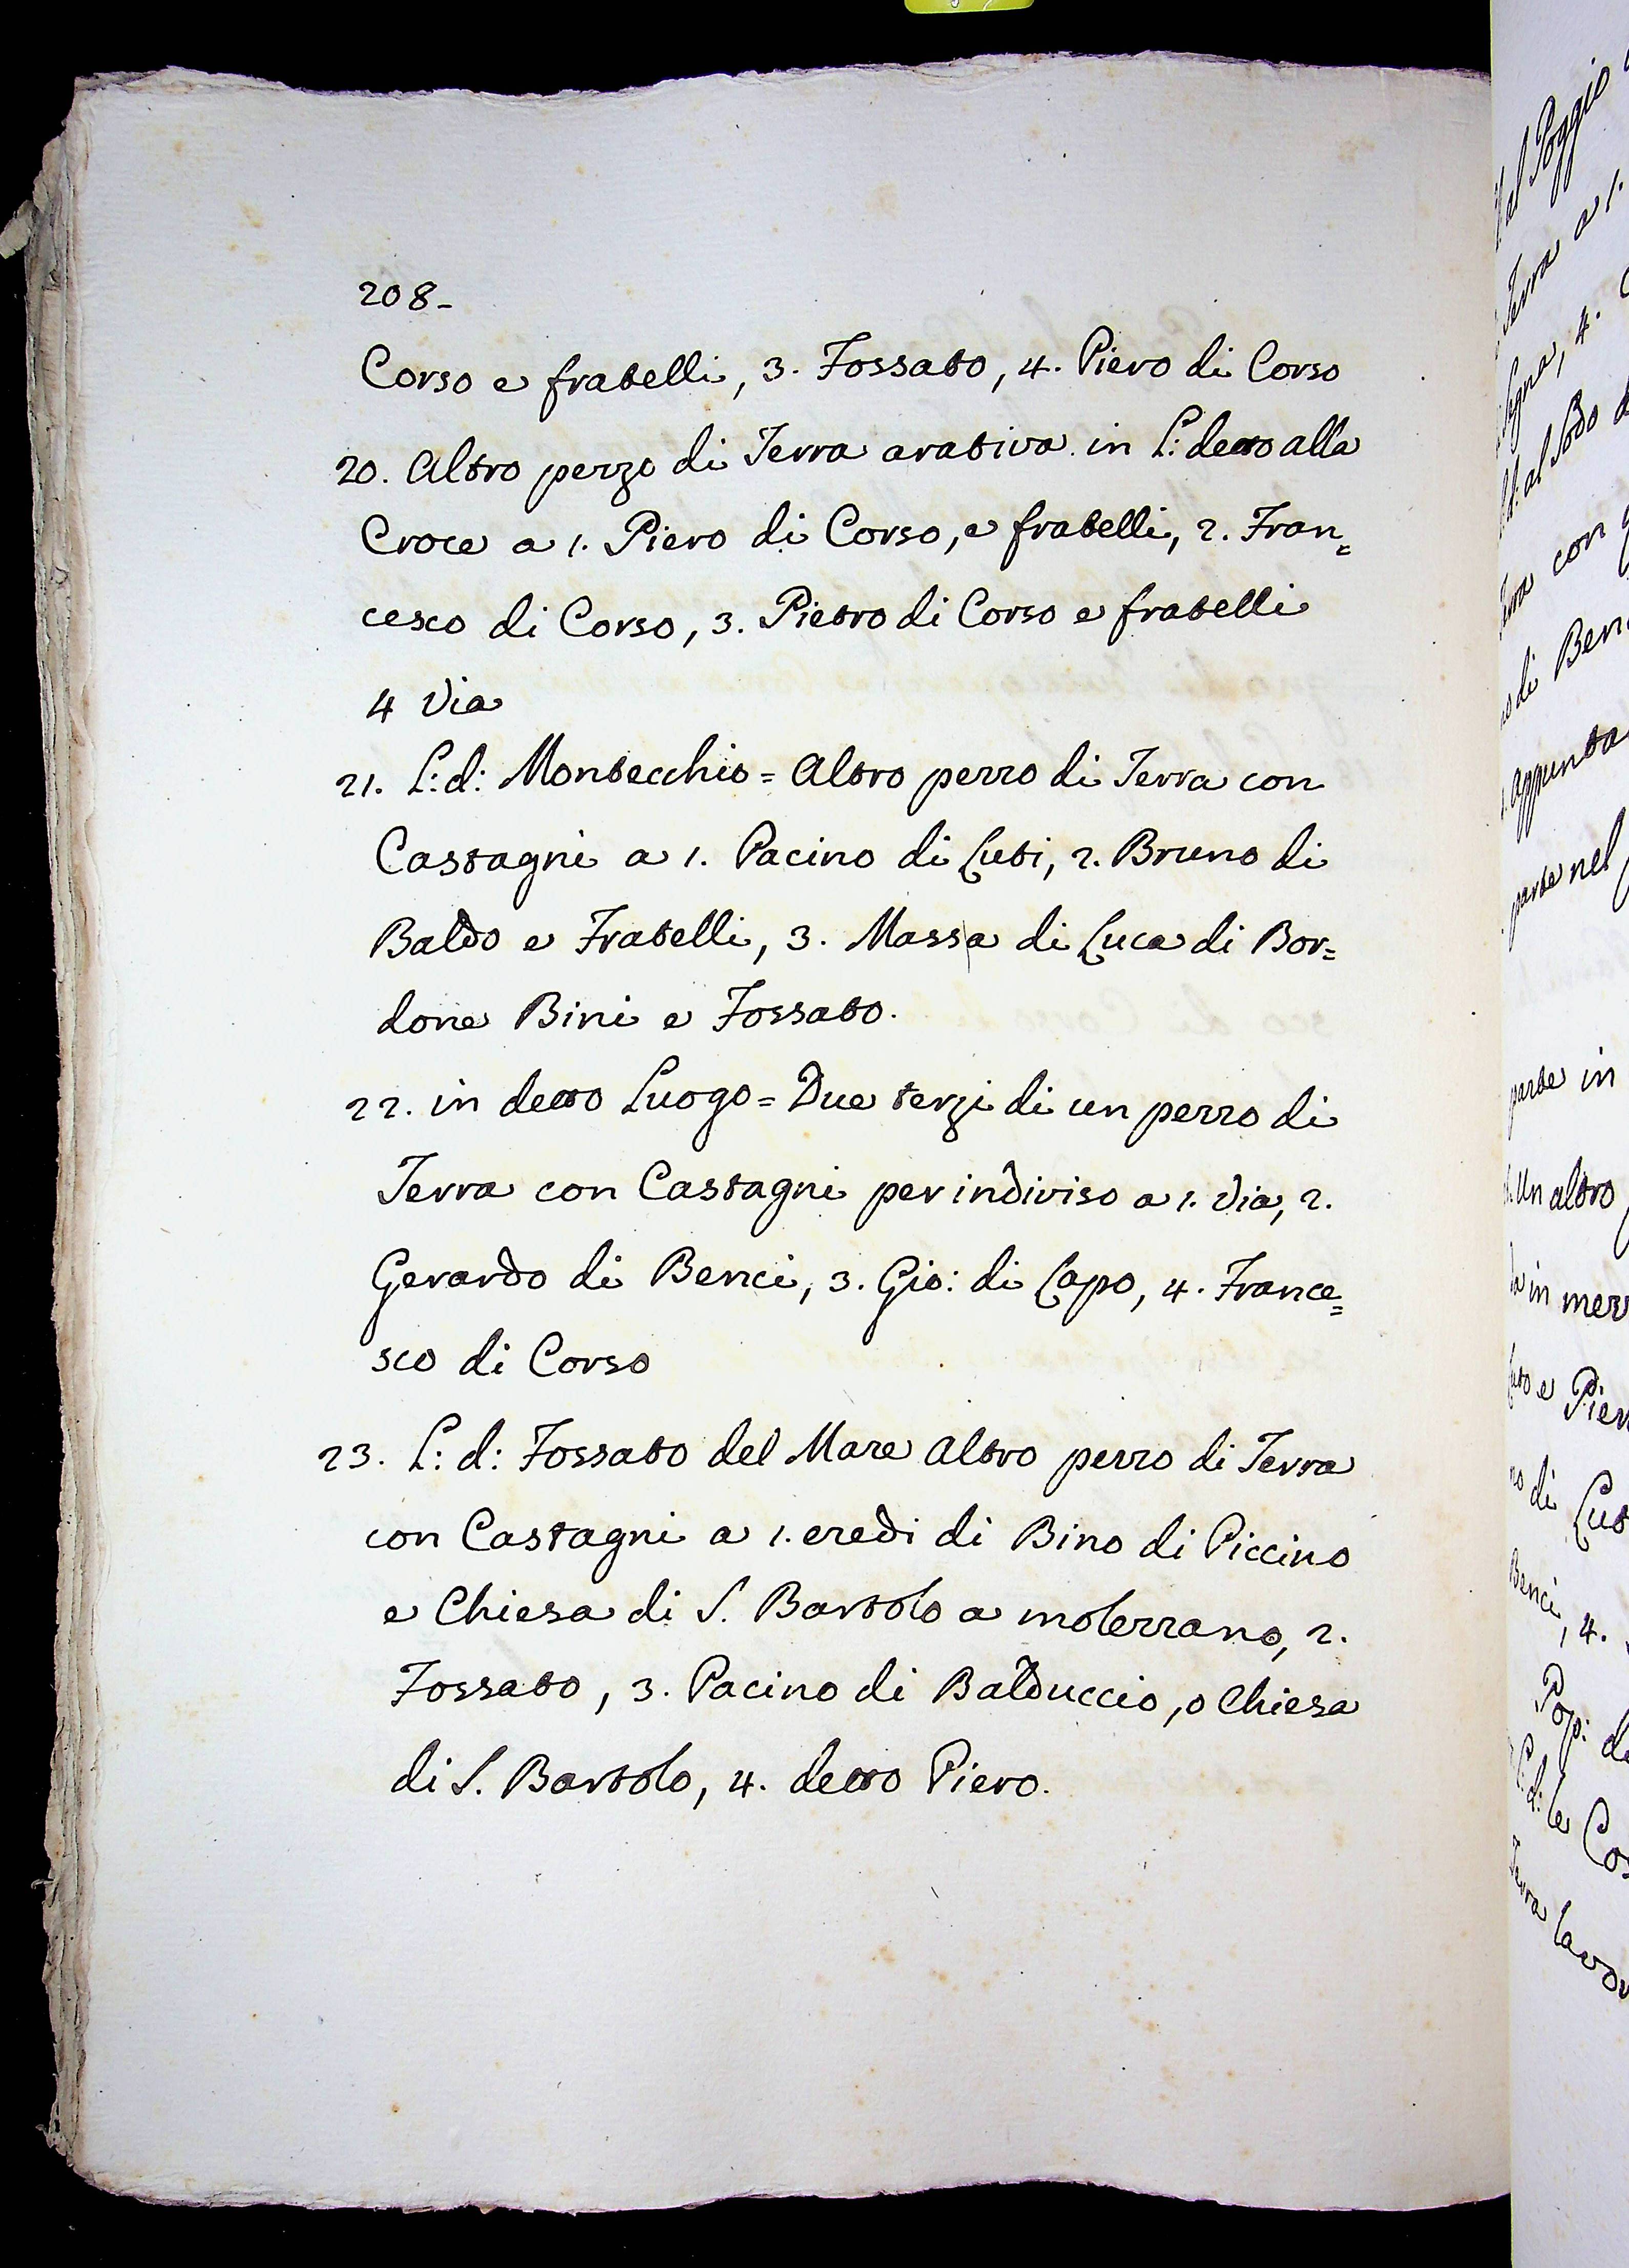 208-
Corso e fratelli, 3. Fossato, 4. Piero di Corso
20. Altro pezzo di Terra arativa in L: detto alla
Croce a 1. Piero di Corso, e fratelli, 2. Fran=
cesco di Corso, 3. Pietro di Corso e fratelli
4 Via
21. L: d: Montecchio = Altro pezzo di Terra con
Castagni a 1. Pacino di Luti, 2. Bruno di
Baldo e Fratelli, 3. Massa di Luca di Bor=
done Bini e Fossato.
22. in detto Luogo = Due terzi di un pezzo di
Terra con Castagni per indiviso a 1. Via, 2.
Gerardo di Benci, 3. Gio: di Lapo, 4. France=
sco di Corso
23. L: d: Fossato del Mare Altro pezzo di Terra
con Castagni a 1. eredi di Bino di Piccino
e Chiesa di S. Bartolo a molezzano, 2.
Fossato, 3. Pacino di Balduccio, o Chiesa
di S. Bartolo, 4. detto Piero.
al Poggio
Terra a 1.
4.
al Sodo
con
di Benci
appunta
parte nel
parte in
Un altro
in mezz
e Pier
di Lut
Benci, 4.
Pop: de
d: le Cos
Terra lavor